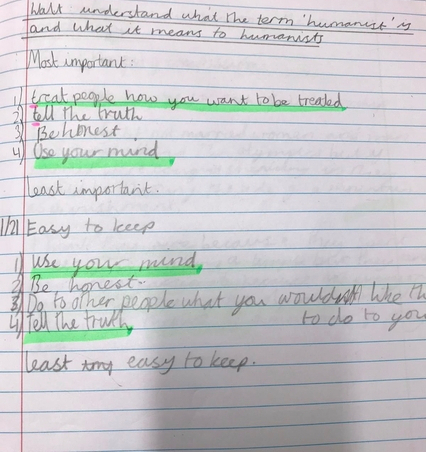 Walt: understand what the term 'humanist' is
and what it means to humanists
Most important:
1) treat people how you want to be treated
2) tell the truth
3) Be honest
4) Use your mind
Least important.
1/21 Easy to keep
1) Use your mind
2) Be honest.
3) Do to other people what you would like
4) Tell the truth to do to you
Least easy to keep.